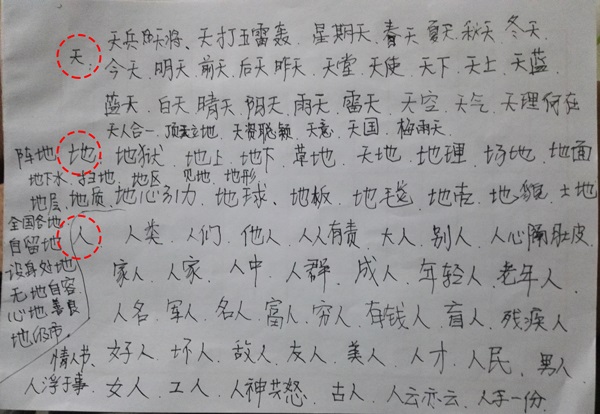 天兵天将、天打五雷轰、星期天、春天、夏天、秋天、冬天
天、今天、明天、前天、后天、昨天、天堂、天使、天下、天上、天蓝
蓝天、白天、晴天、阴天、雨天、雷天、天空、天气、天理何在
天人合一、顶天立地、天资聪颖、天意、天国、梅雨天
阵地、地、地狱、地上、地下、草地、天地、地理、场地、地面
地下水、扫地、地区、见地、地形
地层、地质、地心引力、地球、地板、地毯、地志、地貌、土地
全国各地
自留地
设身处地
无地自容
心地善良
地级市
人、人类、人们、他人、人人有责、大人、别人、人心隔肚皮
家人、人家、人中、人群、成人、年轻人、老年人
人名、军人、名人、富人、穷人、有钱人、盲人、残疾人
情人节、好人、坏人、敌人、友人、美人、人才、人民、男人
人浮于事、女人、工人、人神共怒、古人、人云亦云、人手一份